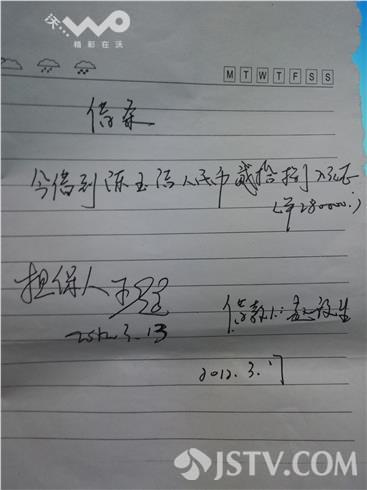 沃… WO
精彩在沃
M T W T F S S
借条
今借到陈玉 人民币贰拾 万元正
(¥280000.)
担保人
2012.3.13
借款人:
2012.3.
JSTV.COM